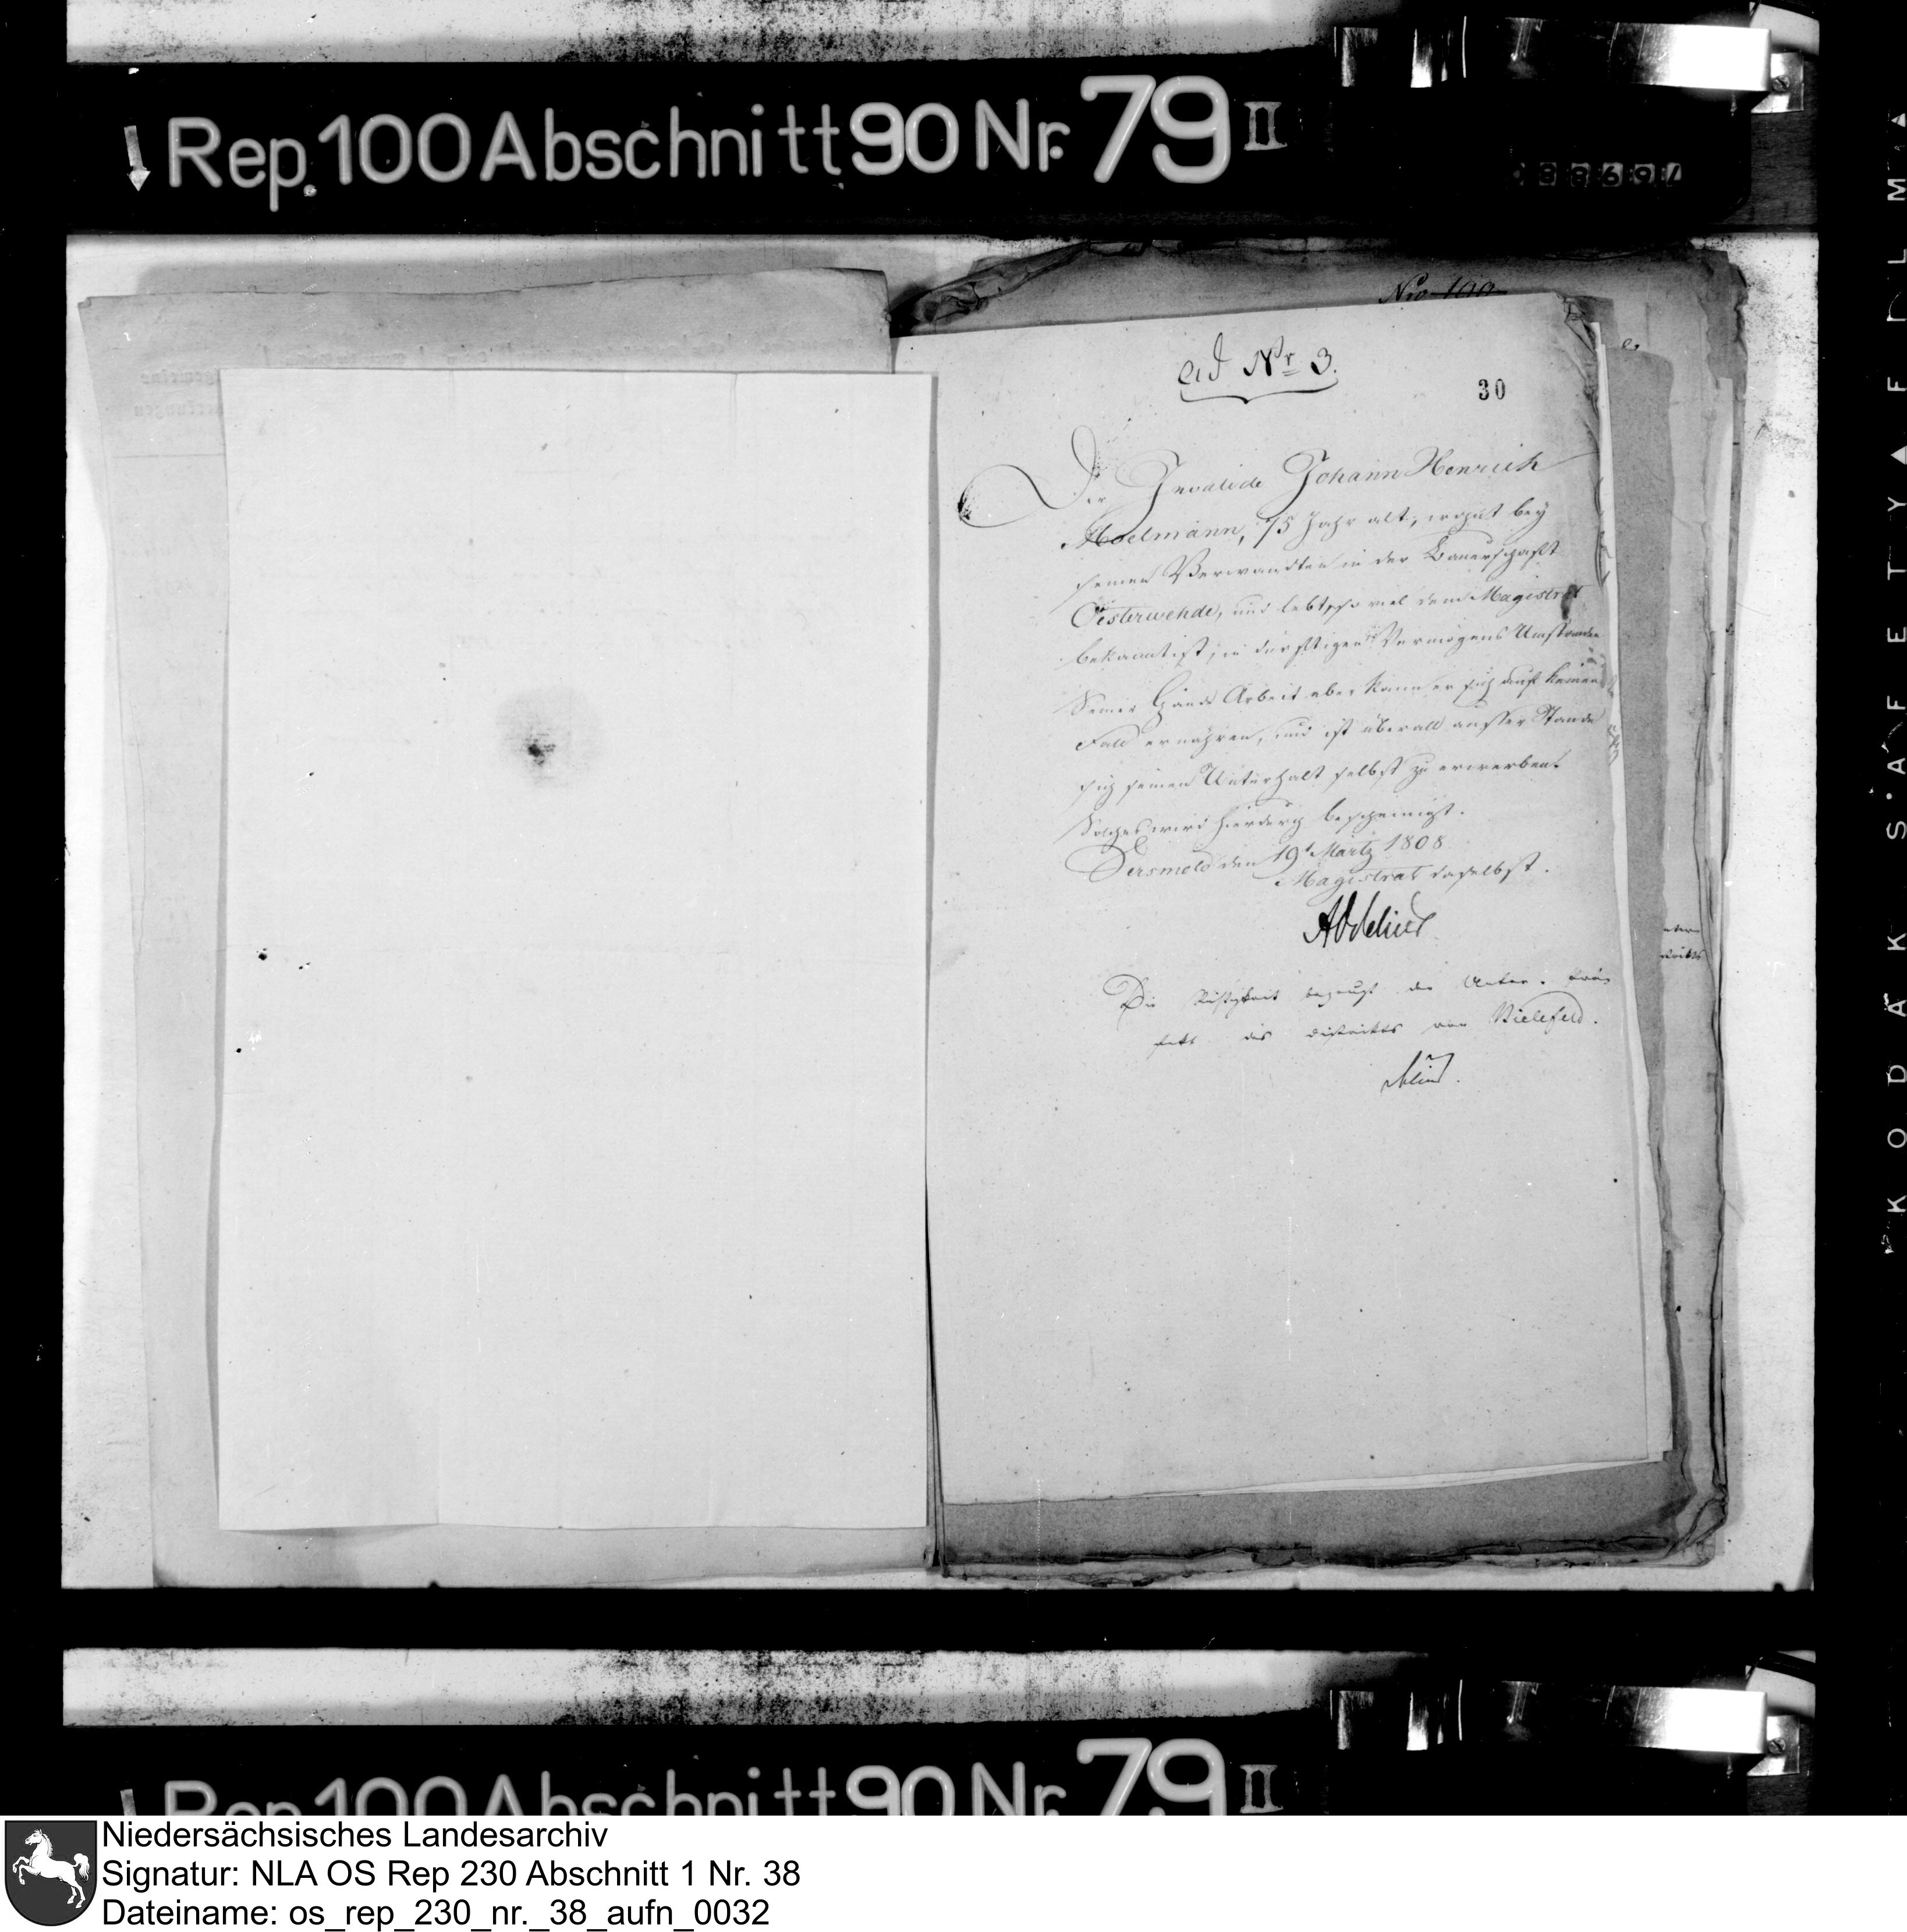 Rep. 100 Abschnitt 90 Nr. 79 II
Nro 100
ad Nr 3.
30
Der Invalide Johann Henrich
75 Jahr alt, wohnt bey
seinen Verwandten in der Bauerschaft
Oesterwehde, und lebt, so viel dem Magistrat
bekannt ist, in dürftigen Vermögens Umständen
Seiner Hände Arbeit aber kann er sich auf keinen
Fall ernähren, und ist überall ausser Stande
sich seinen Unterhalt selbst zu erwerben.
Solches wird hierdurch bescheinigt.
den 19t Märtz 1808
Magistrat daselbst.
Die Richtigkeit bezeugt der Unter-Prä
fekt des Districkts von Bielefeld.
Rep. 100 Abschnitt 90 Nr. 79 II
KODAK SAFETY FILM
Niedersächsisches Landesarchiv
Signatur: NLA OS Rep 230 Abschnitt 1 Nr. 38
Dateiname: os_rep_230_nr._38_aufn_0032